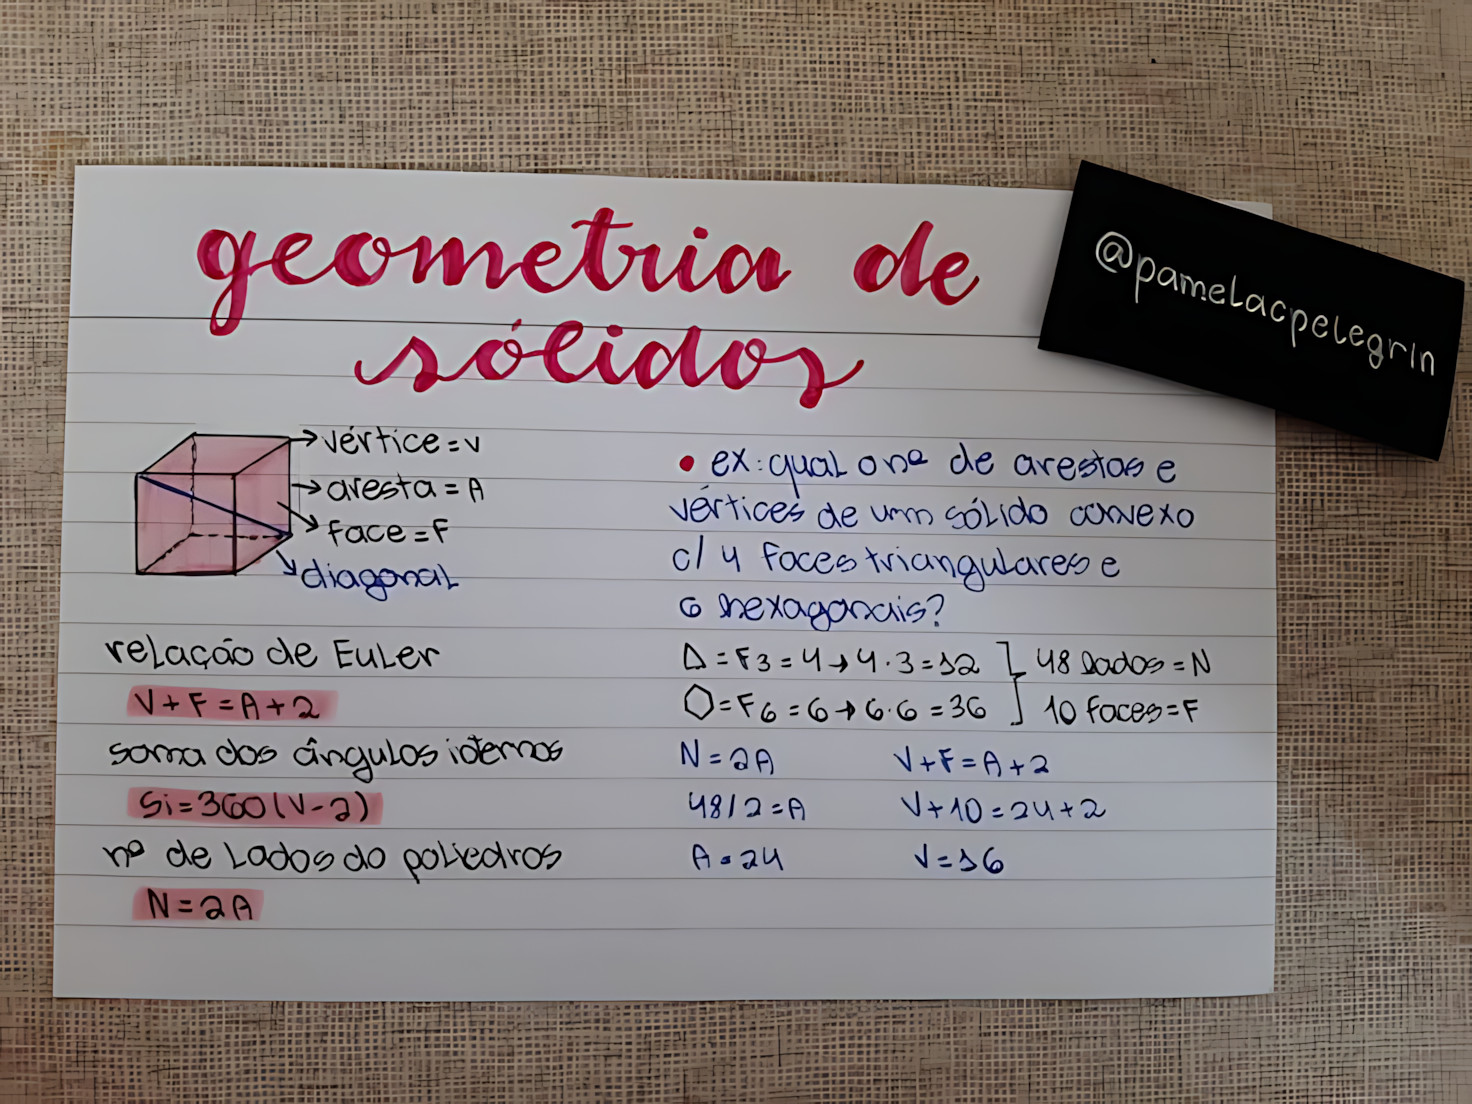 geometria de
sólidos
@pamelacpelegrin
→vértice = v
→aresta = A
→face = F
→diagonal
relação de Euler
V+F = A+2
soma dos ângulos internos
Si = 360(V-2)
nº de Lados do poliedros
N = 2A
• ex: qual o nº de arestas e
vértices de um sólido convexo
c/ 4 faces triangulares e
6 hexagonais?
△ = F3 = 4 → 4 . 3 = 12 ] 48 lados = N
⬡ = F6 = 6 → 6 . 6 = 36 ] 10 faces = F
N = 2A V+F = A+2
48/2 = A V+10 = 24+2
A = 24 V = 16